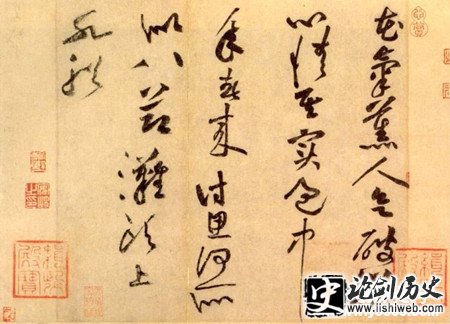 花氣薰人欲破禪
心情其實過中
年春來詩思何所
似八節灘頭上
水船
史 论剑历史
www.lishiweb.com